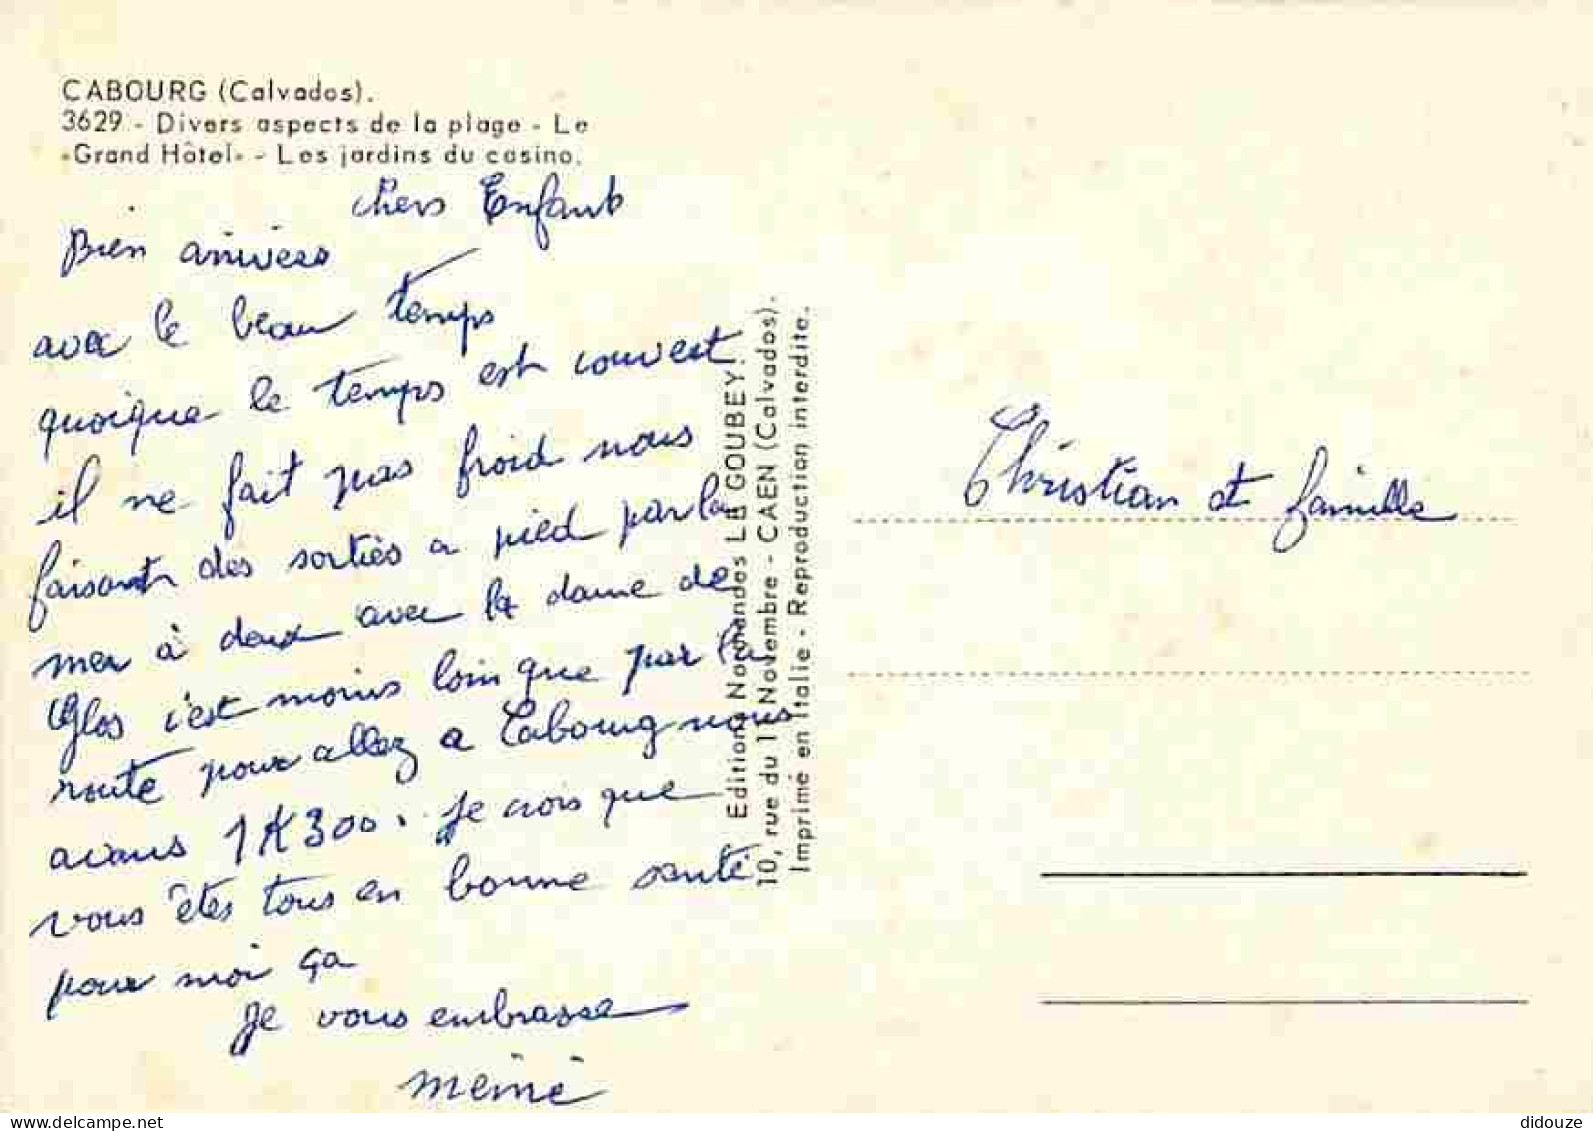 CABOURG (Calvados).
3629 - Divers aspects de la plage - Le
«Grand Hôtel» - Les jardins du casino.
chers Enfants
Bien arrivées
avec le beau temps
quoique le temps est couvert
il ne fait pas froid nous
faisont des sorties a pied par la
mer à deux avec la dame de
Glos c'est moins loin que par la
route pour allez a Cabourg nous
avons 1K300. Je crois que
vous êtes tous en bonne santé
pour moi ça
Je vous embrasse
mémé
Editions Normandes LE GOUBEY.
10, rue du 11 Novembre - CAEN (Calvados).
Imprimé en Italie - Reproduction interdite.
Christian et famille
delcampe.net
didouze